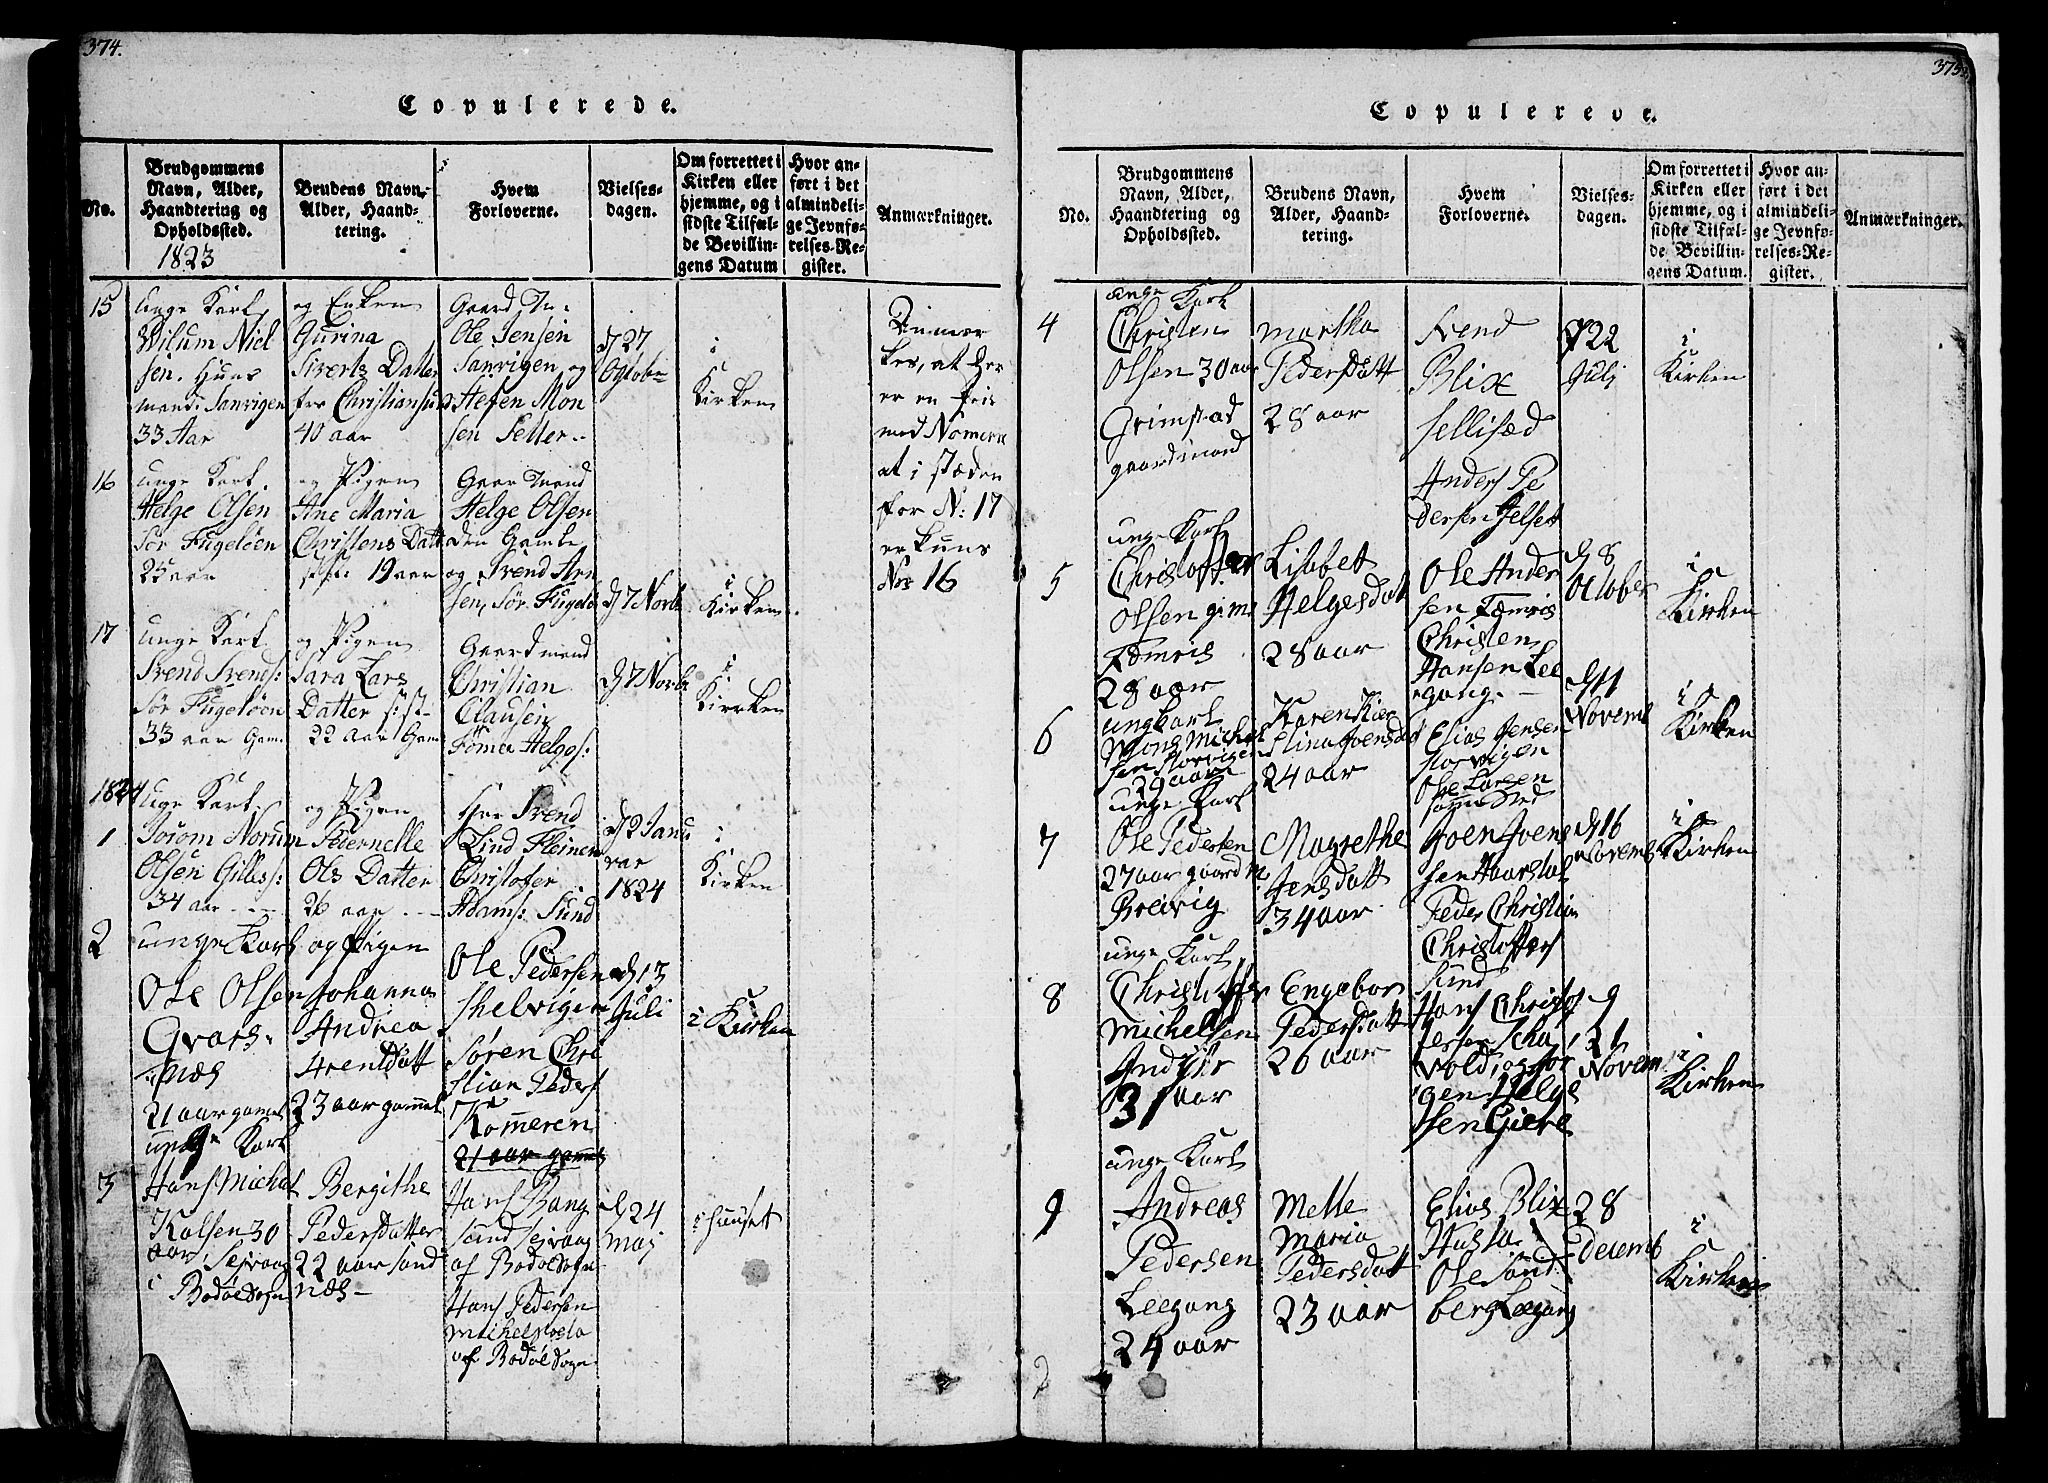 374.
Copulerede.
No.
Brudgommens
Navn, Alder,
Haandtering og
Opholdssted.
1823
Brudens Navn,
Alder, Haand-
tering.
Hvem
Forloverne.
Vielses-
dagen.
Om forrettet i
Kirken eller
hjemme, og i
sidste Tilfæl-
de Bevillin-
gens Datum
Hvor an-
ført i det
almindeli-
ge Jevnfø-
relses-Re-
gister.
Anmærkninger.
15
unge Karl
Wilum Niel
sen. Huus
mand: Sanvigen
33 Aar
og Enken
Gurina
Siverts Datter
fra Christiansund
40 aar
Ole Jensen
Sanvigen og
Stefen Mon
sen Selter
D 27
Octobr
i
Kirken
at her
er en feil
med Nomern
at i stæden
for N: 17
er kuns
No 16
16
unge Karl
Helge Olsen
Sør Fugeløen
25 aar
og Pigen
Ane Maria
Christens Datt
19 aar
Helge Olsen
den Gamle
og Svend Arn
sen, Sør Fugelø
D 7 Novb
i
Kirken
17
unge Karl
Svend Svends:
Sør Fugeløen
33 aar Gam.
og Pigen
Sara Lars
Datter sist
22 Aar Gam
Gaardmand
Christian
Clausen
Helges:
D 7 Novb
i
Kirken
1824
1
unge Karl
Norum
Olsen Gilless:
34 aar
og Pigen
Pedernelle
Ols Datter
26 aar
Her Svend
Lind Fleinen
Christofer
Adams: Sund
D 2 Janu
var
1824
i
Kirken
2
unge Karl
Ole Olsen
Gvars
næs
21 aar gamel
og Pigen
Johanna
Andrea
Arentdatt
23 aar gamel
Ole Pedersen
Skelvigen
Søren Chri
stian Peders
Kommeren
21 aar gamel
D 13
Juli
i Kirken
3
unge Karl
Hans Michal
Kolsen 30
aar, Seivaag
i Bodøe Sogn
Bergithe
Pedersdatter
22 aar Sand
næs
Hans Bang
sund Seivaag
af Bodøe Sogn
Hans Pedersen
af Bodøe Sogn
D 24
Maj
i Huuset
375.
Copulerede.
No.
Brudgommens
Navn, Alder,
Haandtering og
Opholdssted.
Brudens Navn,
Alder, Haand-
tering.
Hvem
Forloverne.
Vielses-
dagen.
Om forrettet i
Kirken eller
hjemme, og i
sidste Tilfæl-
de Bevillin-
gens Datum.
Hvor an-
ført i det
almindeli-
ge Jevnfø-
relses-Re-
gister.
Anmærkninger.
4
unge Karl
Christen
Olsen 30 aar
Grimstad
gaardmand
Martha
Pedersdatt
28 aar
Svend
Blix
Anders Pe
dersen
D 22
Julj
i
Kirken
5
unge Karl
Christoffer
Olsen
28 aar
Lisbet
Helgesdatt
28 aar
Ole Ander
sen
Christen
Hansen Lee
gang.
D 8
October
i
Kirken
6
ung Karl
Mons Michel
sen Storvigen
29 aar
Karen Kier
stina Joensdatt
24 aar
Elias Jensen
Storvigen
Ole Larsen
samme Sted
D 11
Novemb
i
Kirken
7
unge Karl
Ole Pedersen
27 aar gaardm
Breivig
Magrethe
Jensdatt
34 aar
Joen Joens
sen Haarstad
Peder Christian
Christoffers
Sund
D 16
Novemb
i
Kirken
8
unge Karl
Christoffer
Michelsen
31 aar
Engebor
Pedersdatt
26 aar
Hans Christof
fersen
vold, og
gen Helge
sen Giere
D
21
Novem
i
Kirken
9
unge Karl
Andreas
Pedersen
Leegang
24 aar
Mette
Maria
Pedersdatt
23 aar
Elias Blix
Ole Sand
berg Leegang
28
Decemb
i
Kirken